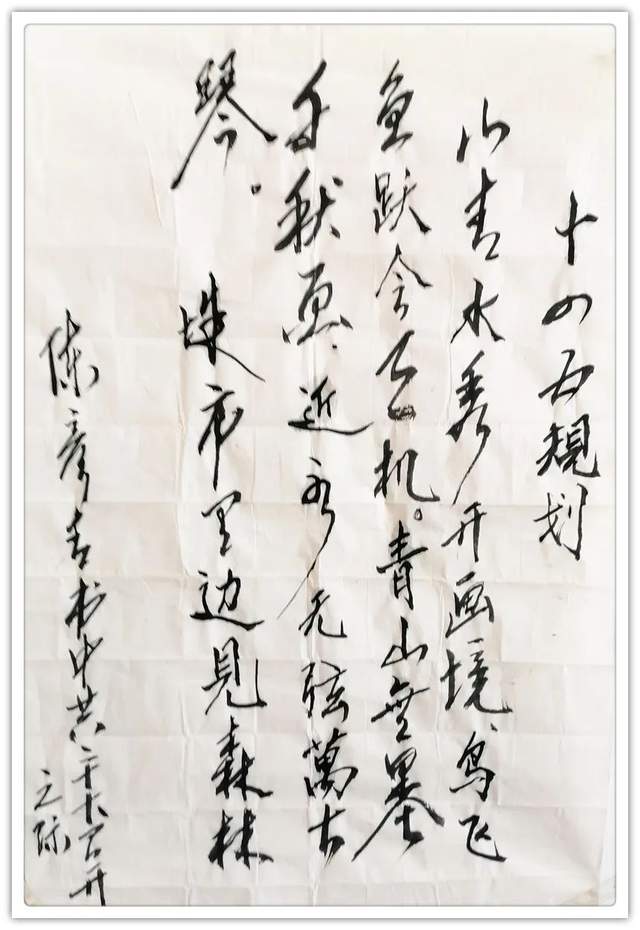 十四五规划
山青水秀开画境、鸟飞
鱼跃今天机。青山無墨
千秋画、近水无弦萬古
琴。
城市里边見森林
陈彦青书於中共二十大召开
之际